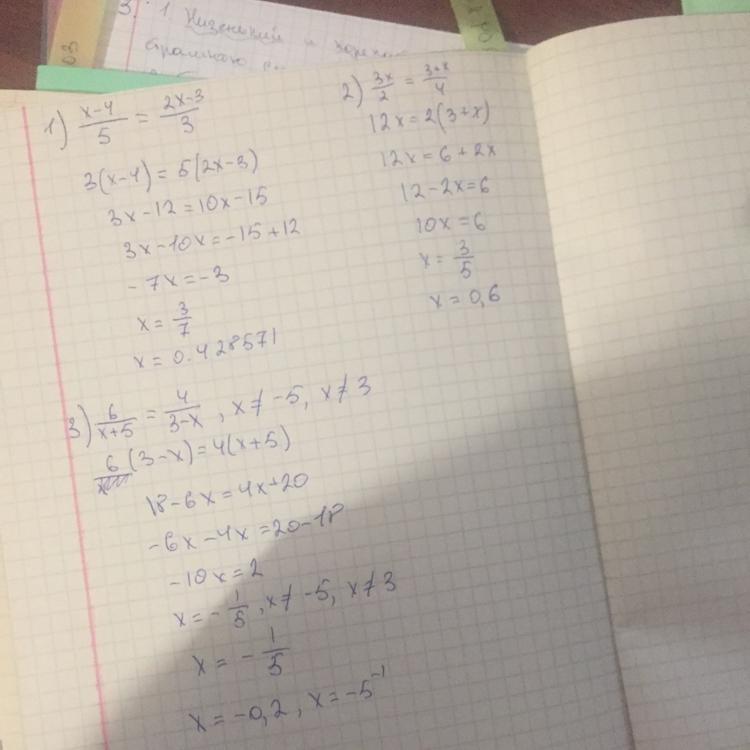 3. 1. Низенький и
03
1) x-4/5 = 2x-3/3
3(x-4)=5(2x-3)
3x-12=10x-15
3x-10x=-15+12
-7x=-3
x=3/7
x=0.428571
2) 3x/2 = 3+x/4
12x=2(3+x)
12x=6+2x
12-2x=6
10x=6
x=3/5
x=0,6
3) 6/x+5 = 4/3-x, x≠-5, x≠3
6(3-x)=4(x+5)
18-6x=4x+20
-6x-4x=20-18
-10x=2
x=-1/5, x≠-5, x≠3
x=-1/5
x=-0,2, x=-5⁻¹